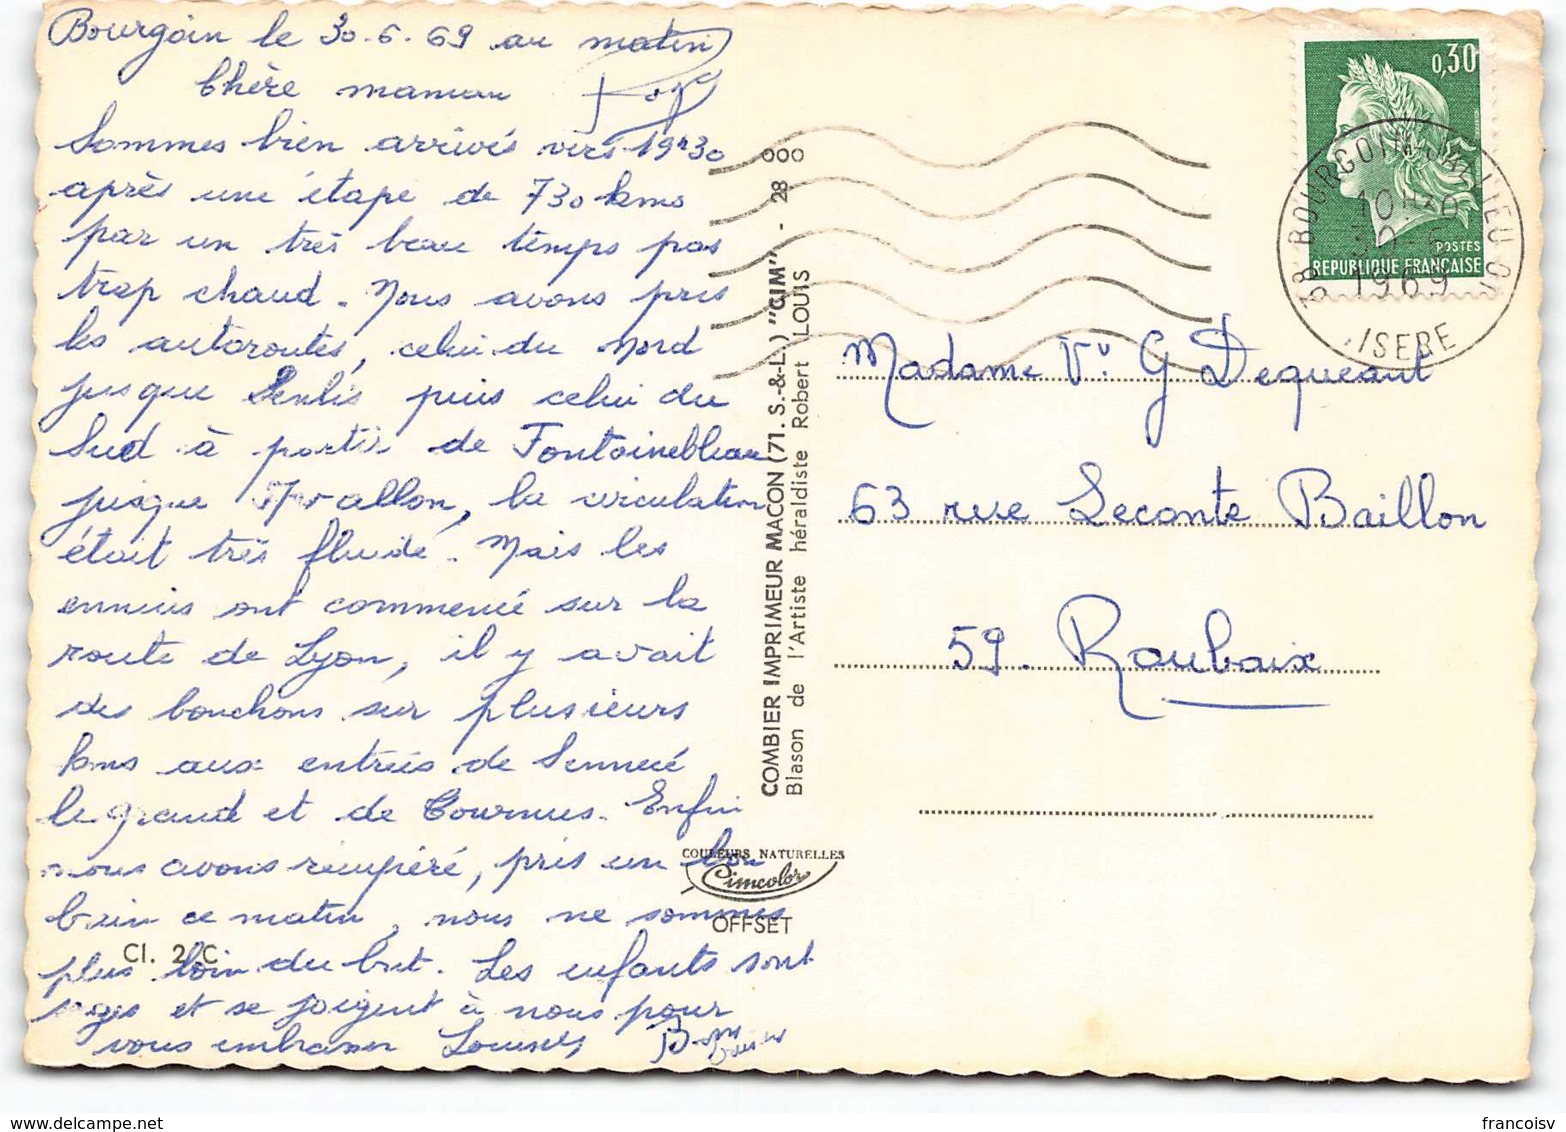 Bourgoin le 30.6.69 au matin
Chère maman
Sommes bien arrivés vers 19h30
après une étape de 730 kms
par un très beau temps pas
trop chaud. Nous avons pris
les autoroutes, celui du Nord
jusque Senlis puis celui du
Sud à partir de Fontainebleau
jusque Avallon, la circulation
était très fluide. Mais les
ennuis ont commencé sur la
route de Lyon, il y avait
des bouchons sur plusieurs
kms aux entrées de Sennecé
le grand et de Tournus. Enfin
nous avons récupéré, pris un bon
bain ce matin, nous ne sommes
plus loin du but. Les enfants sont
sages et se joignent à nous pour
vous embrasser
Bons baisers
COMBIER IMPRIMEUR MACON (71. S.-&-L.) "CIM" - 28 000
Blason de l'Artiste héraldiste Robert LOUIS
COULEURS NATURELLES
Cimcolor
OFFSET
Cl. 2/C
0,30
POSTES
REPUBLIQUE FRANÇAISE
38 BOURGOIN-JALLIEU
10H30
30-6
1969
ISERE
Madame Vu G Dequeant
63 rue Leconte Baillon
59. Roubaix
francoisv